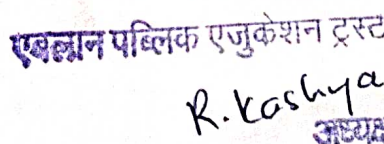 एवलान पब्लिक एजुकेशन ट्रस्ट
R. Kashya
अध्यक्ष